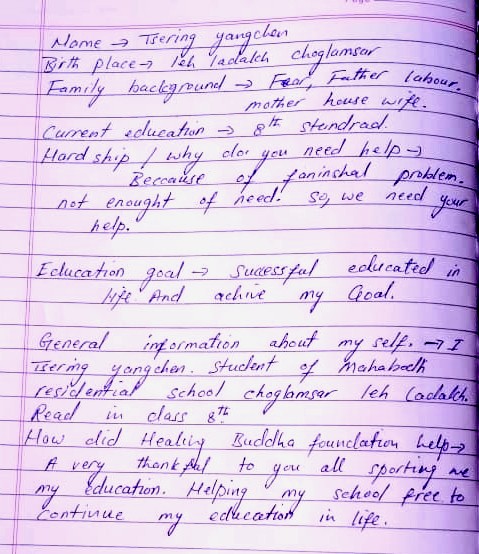 Name → Tsering yangchen
Birth place → leh ladakh choglamsar
Family background → Fear, Father labour.
mother house wife.
Current education → 8th standrad.
Hard ship / why do you need help →
Beccause of faninshal problem.
not enought of need. So, we need your
help.
Education goal → Successful educated in
life And achive my Goal.
General information about my self. → I
Tsering yangchen. Student of Mahabodh
residential school choglamsar leh ladakh.
Read in class 8th.
How did Healing Buddha foundation help →
A very thankful to you all sporting me
my education. Helping my school free to
continue my education in life.